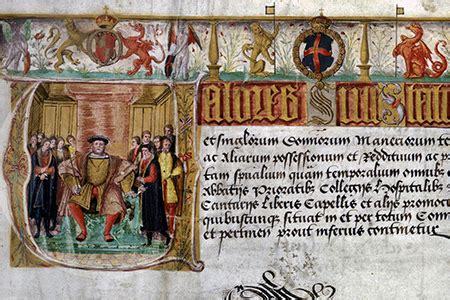 alores
et singlorum Honorum Maneriorum te
ac Aliarum possessionum et Reddituum ac p
tam spualium quam temporalium omnib
Abbatijs Prioratib Collegijs Hospitalib
Cantarijs Liberis Capellis et alijs promoc
quibuscunque situat in et per totum Com
et pertinen prout inferius continetur